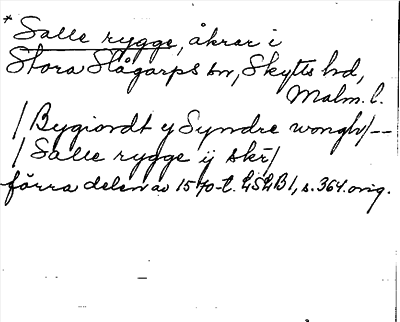 * Salle rygge, åkrar i
Stora Slågarps sn, Skytts hd,
Malm. l.
/ Bygiordt y Syndre wongh/ --
/ Salle rygge ij skr̄/
förra delen av 1570-t. LSLB1, s. 364. orig.